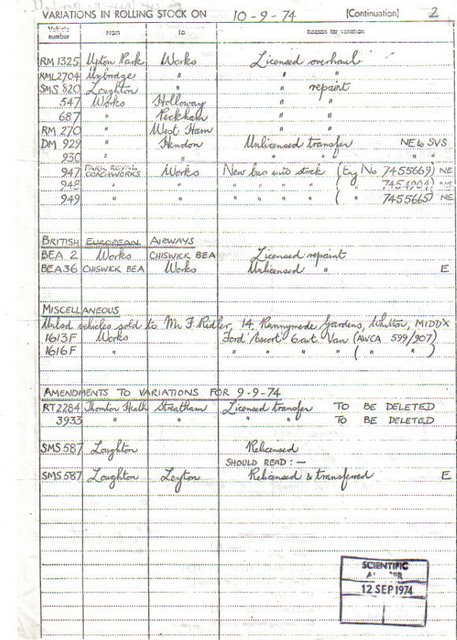 VARIATIONS IN ROLLING STOCK ON 10-9-74 (Continuation) 2
Vehicle number From To Reason for variation
RM 1325 Upton Park Works Licensed overhaul
RML 2704 Uxbridge " " "
SMS 820 Loughton " " repaint
547 Works Holloway " "
687 " Peckham " "
RM 270 " West Ham " "
DM 929 " Hendon Unlicensed transfer NE to SVS
930 " " " "
947 PARK ROYAL COACHWORKS Works New bus into stock (Eng No. 7455669) NE
948 " " " " " " ( " " ) NE
949 " " " " " " ( " " 7455665) NE
BRITISH EUROPEAN AIRWAYS
BEA 2 Works CHISWICK BEA Licensed repaint
BEA 36 CHISWICK BEA Works Unlicensed " E
MISCELLANEOUS
vehicles sold to Mr F. Ridler, 14, Runnymede Gardens, Whitton, MIDDX
1613 F Works Ford 'Escort' 6cwt. Van (AWCA 599/907)
1616 F " " " " ( " " )
AMENDMENTS TO VARIATIONS FOR 9-9-74
RT 2284 Thornton Heath Streatham Licensed transfer TO BE DELETED
3933 " " " " TO BE DELETED
SMS 587 Loughton Relicensed
SHOULD READ :—
SMS 587 Loughton Leyton Relicensed & transferred E
SCIENTIFIC
12 SEP 1974